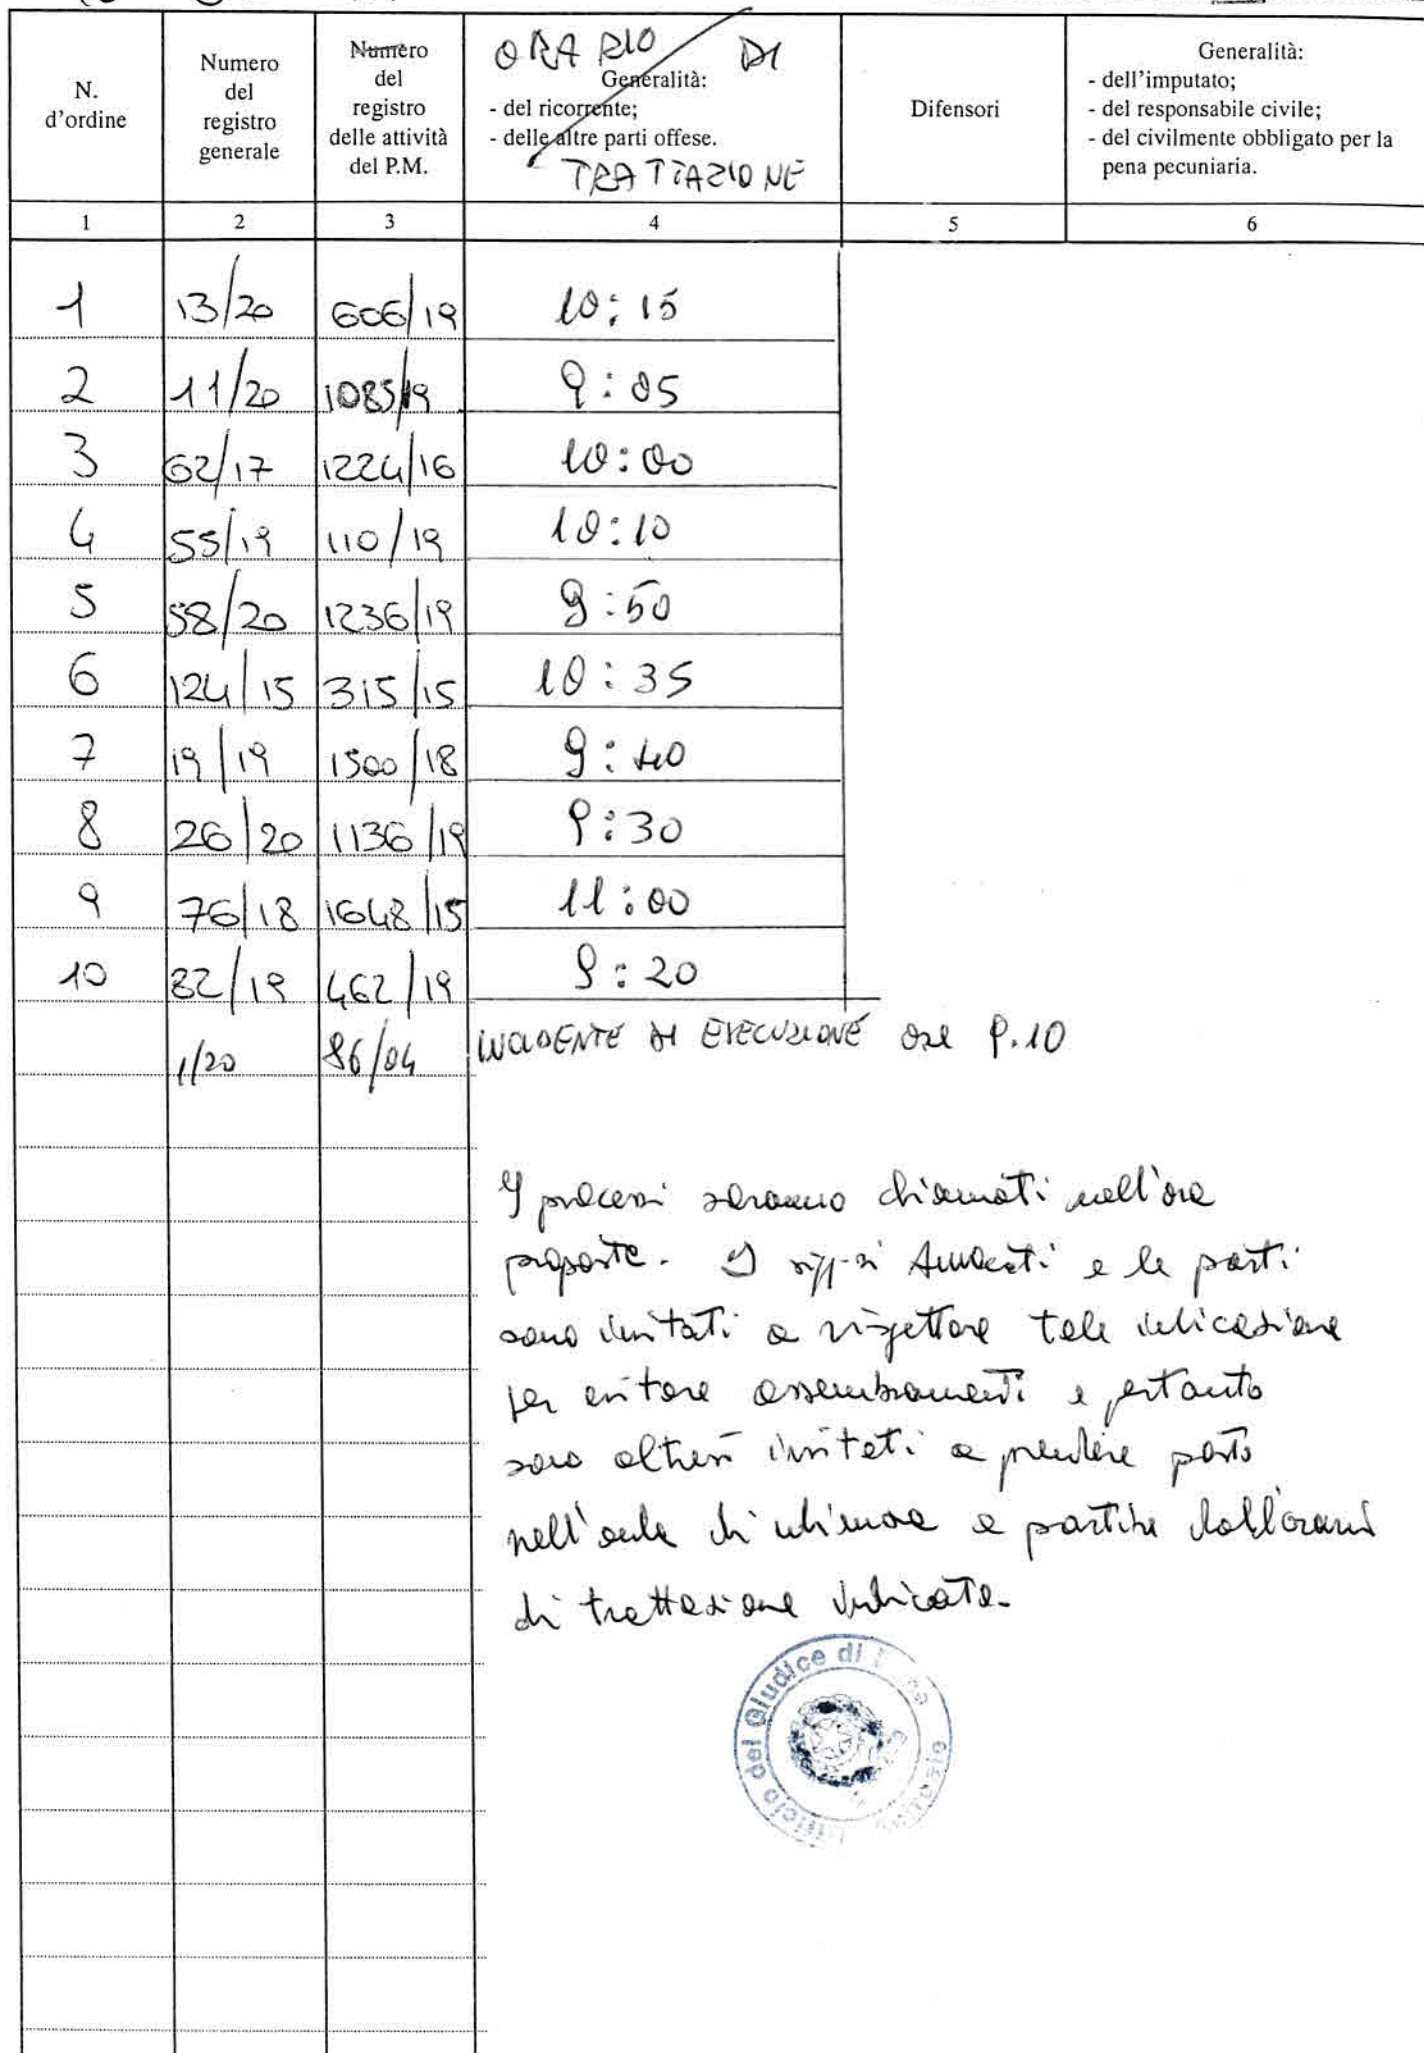 N.
d'ordine
Numero
del
registro
generale
Numero
del
registro
delle attività
del P.M.
ORARIO DI
Generalità:
- del ricorrente;
- delle altre parti offese.
TRATTAZIONE
Difensori
Generalità:
- dell'imputato;
- del responsabile civile;
- del civilmente obbligato per la
pena pecuniaria.
1 2 3 4 5 6
1 13/20 606/19 10:15
2 11/20 1085/19 9:05
3 62/17 1224/16 10:00
4 55/19 110/19 10:10
5 58/20 1236/19 9:50
6 124/15 315/15 10:35
7 19/19 1500/18 9:40
8 26/20 1136/19 9:30
9 76/18 1648/15 11:00
10 82/19 462/19 9:20
1/20 86/04 INCIDENTE DI ESECUZIONE ore 9.10
I processi saranno chiamati nell'ora
proposta. I sigg.ri Avvocati e le parti
sono invitati a rispettare tale indicazione
per evitare assembramenti e pertanto
sono altresì invitati a prendere posto
nell'aula di udienza a partire dall'orario
di trattazione indicato.
Ufficio del Giudice di